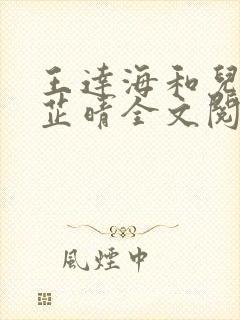 王達海和兒
芷晴全文閱
風煙中